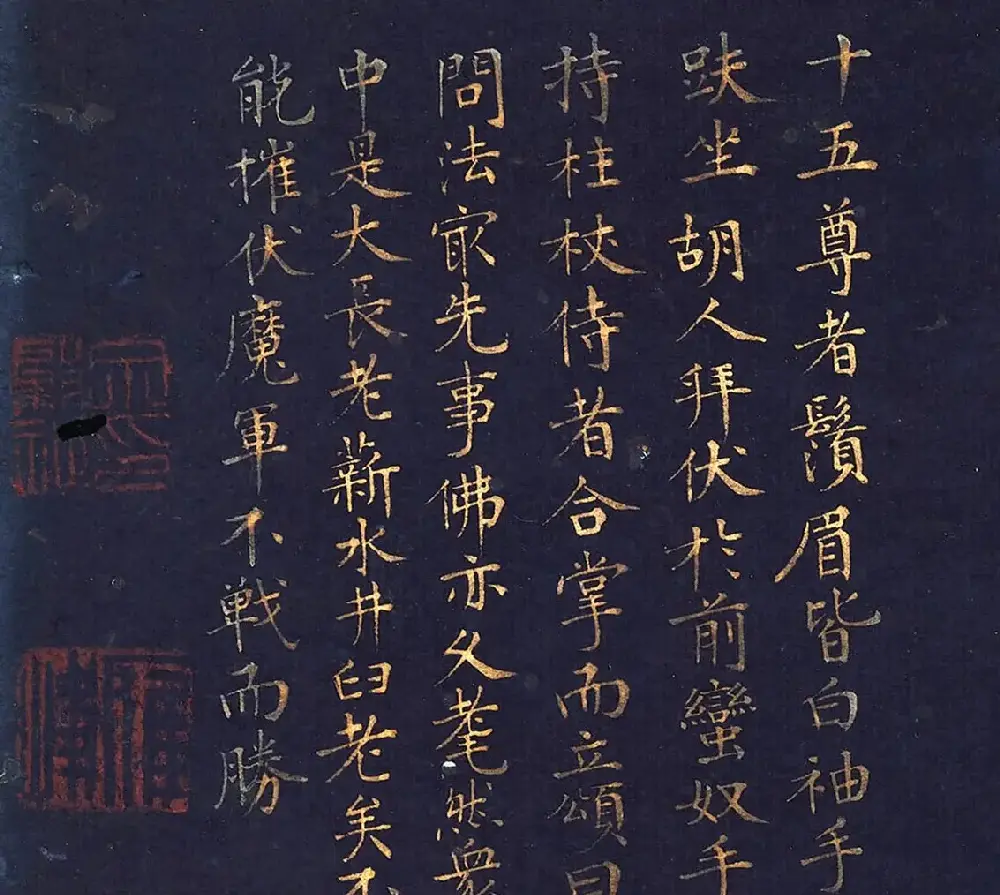 十五尊者鬚眉皆白袖手
趺坐胡人拜伏於前蠻奴手
持柱杖侍者合掌而立頌曰
問法㝡先事佛亦久耄然衆
中是大長老薪水井臼老矣不
能摧伏魔軍不戰而勝